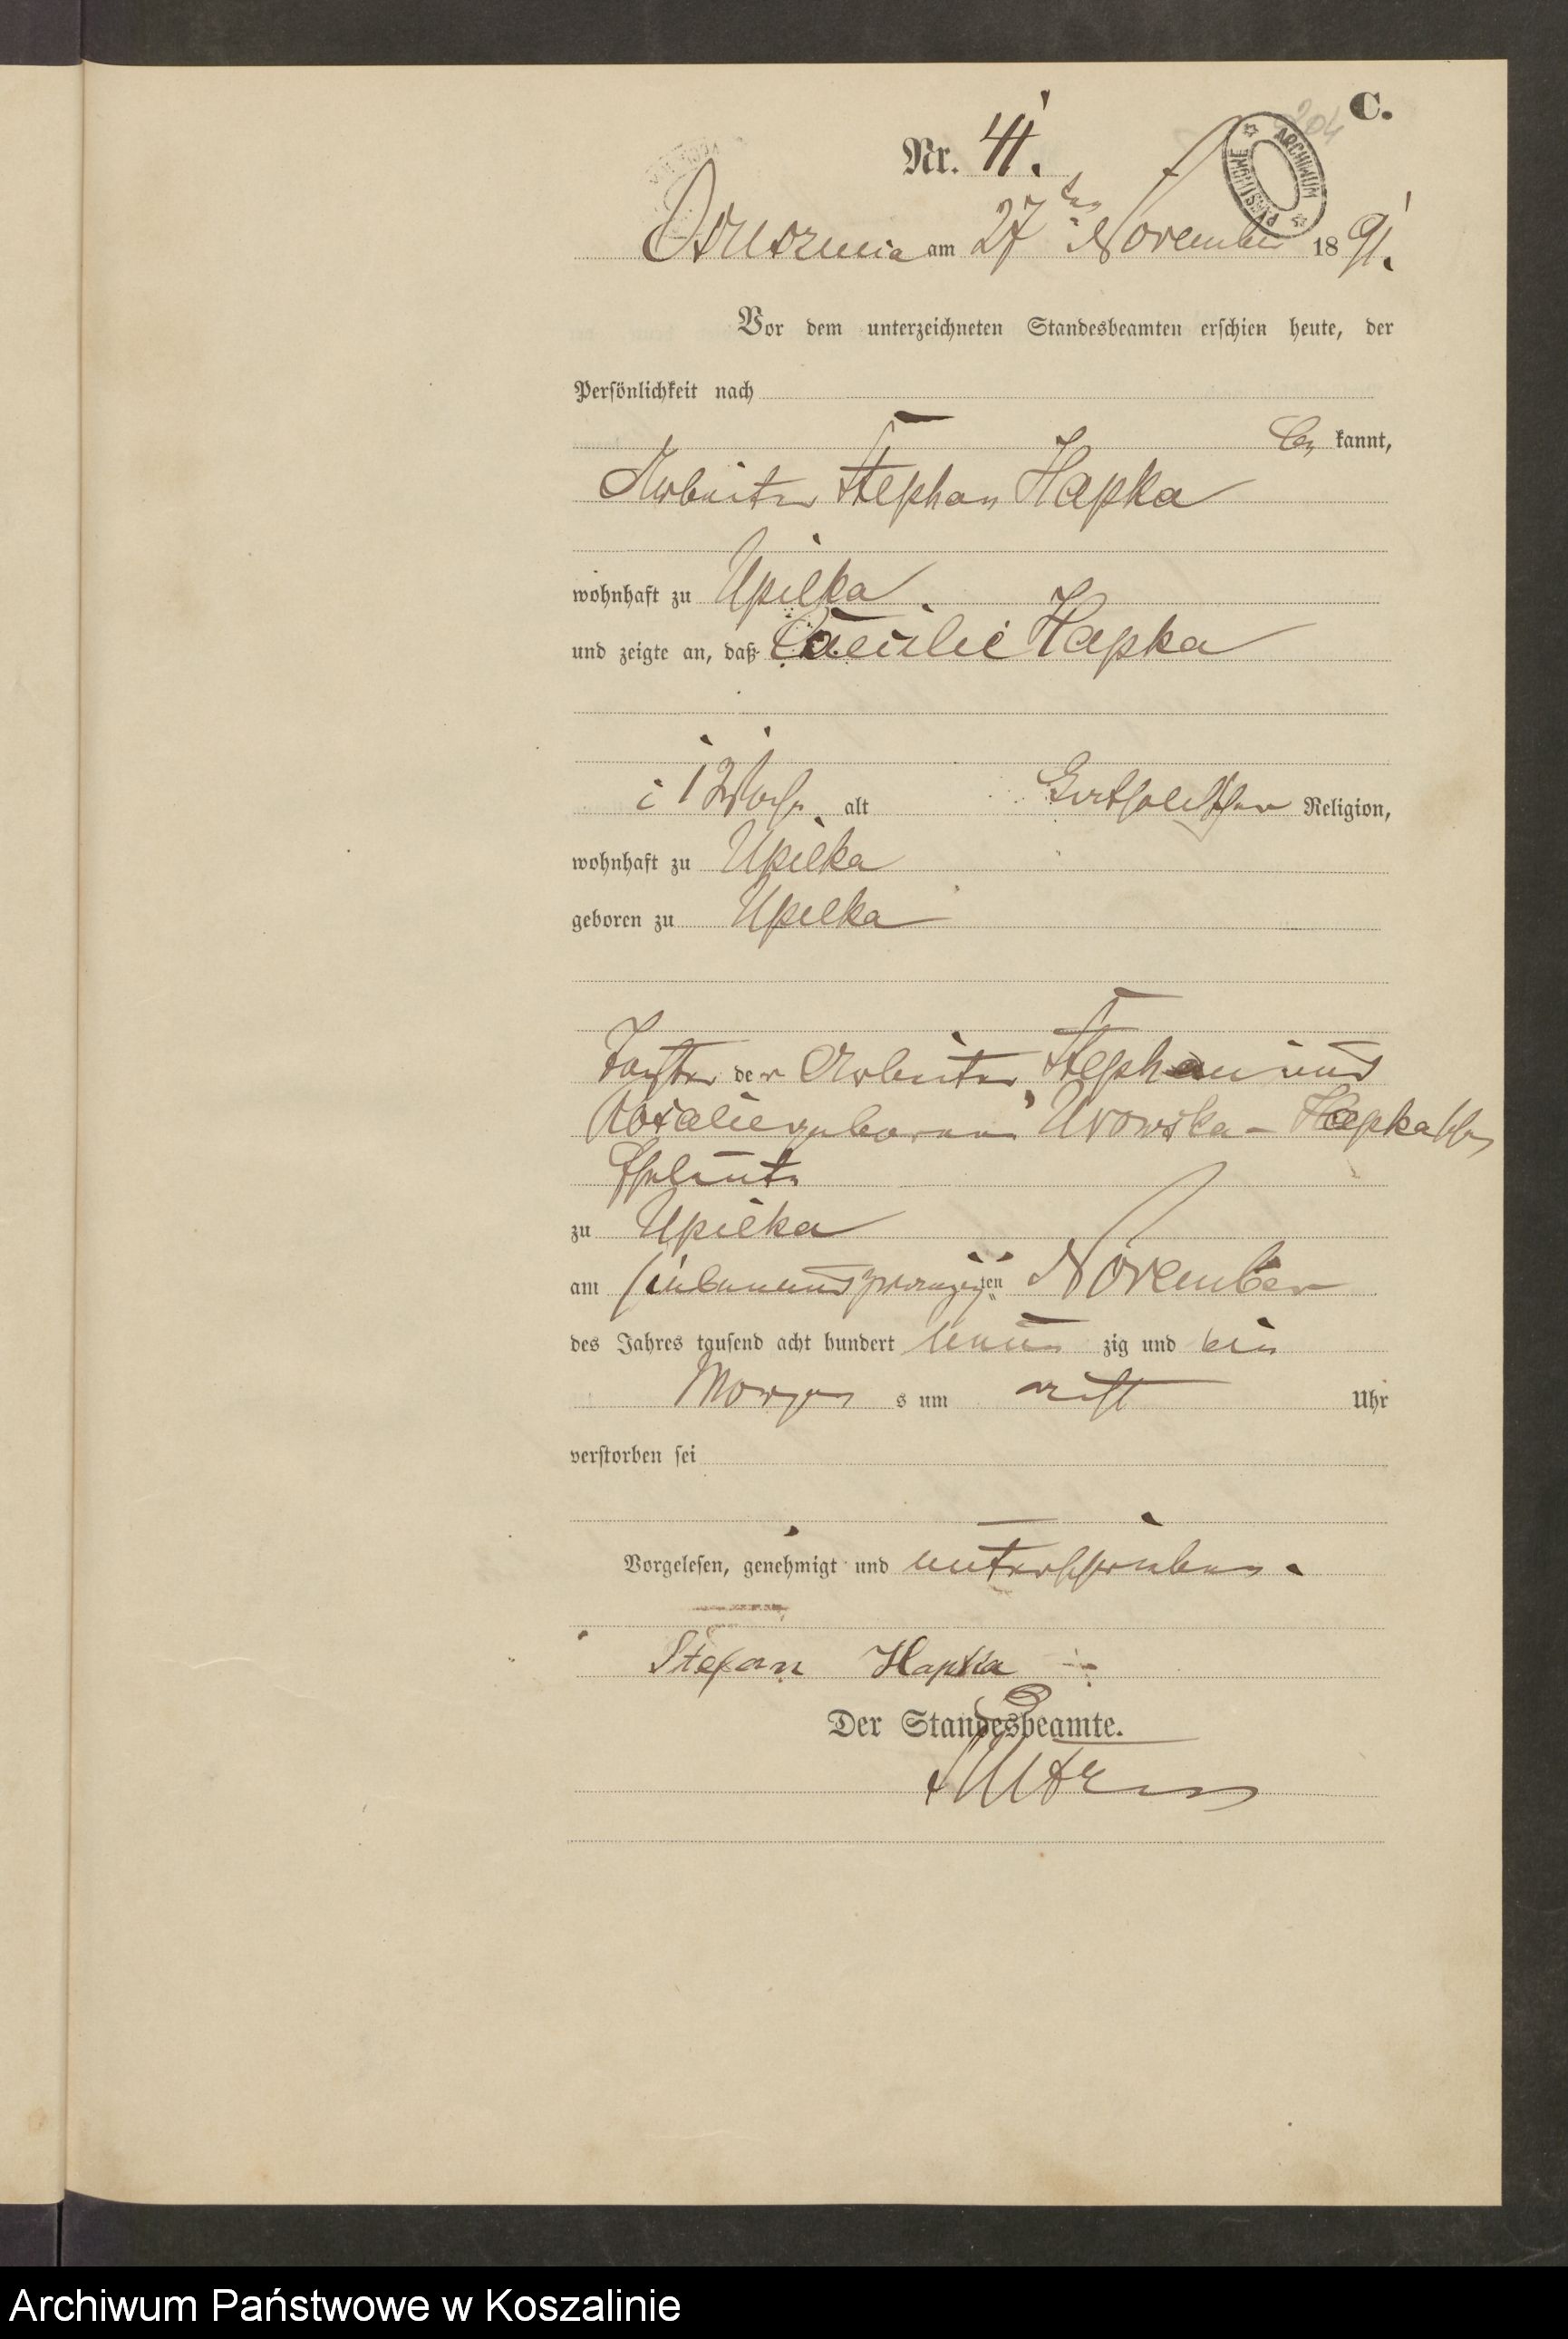 C.
204
Nr. 41.
ARCHIWUM PAŃSTWOWE
am 27ten November 1891.
Vor dem unterzeichneten Standesbeamten erschien heute, der
Persönlichkeit nach
be kannt,
Arbeiter Stephan Hapka
wohnhaft zu Upilka
und zeigte an, daß Cäcilie Hapka
1 Woche alt Katholischer Religion,
wohnhaft zu Upilka
geboren zu Upilka
Tochter der Arbeiter Stephan und
Rosalie geborene Urowska - Hapkaschen
Eheleute
zu Upilka
am siebenundzwanzigsten November
des Jahres tausend acht hundert neun zig und ein
Morgen s um acht Uhr
verstorben sei
Vorgelesen, genehmigt und unterschrieben.
Stefan Hapka
Der Standesbeamte.
Archiwum Państwowe w Koszalinie